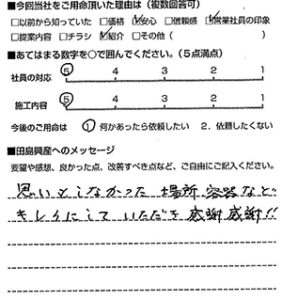 ■今回当社をご用命頂いた理由は（複数回答可）
□以前から知っていた □価格 □安心 □信頼感 □営業社員の印象
□提案内容 □チラシ □紹介 □その他（　　　）
■あてはまる数字を○で囲んでください。（５点満点）
社員の対応 5 4 3 2 1
施工内容 5 4 3 2 1
今後のご用命は 1 何かあったら依頼したい 2．依頼したくない
■田島興産へのメッセージ
要望や感想、良かった点、改善すべき点など、ご自由にご記入ください。
思いもしなかった 場所 容器など
キレイにしていただき 感謝感謝!!